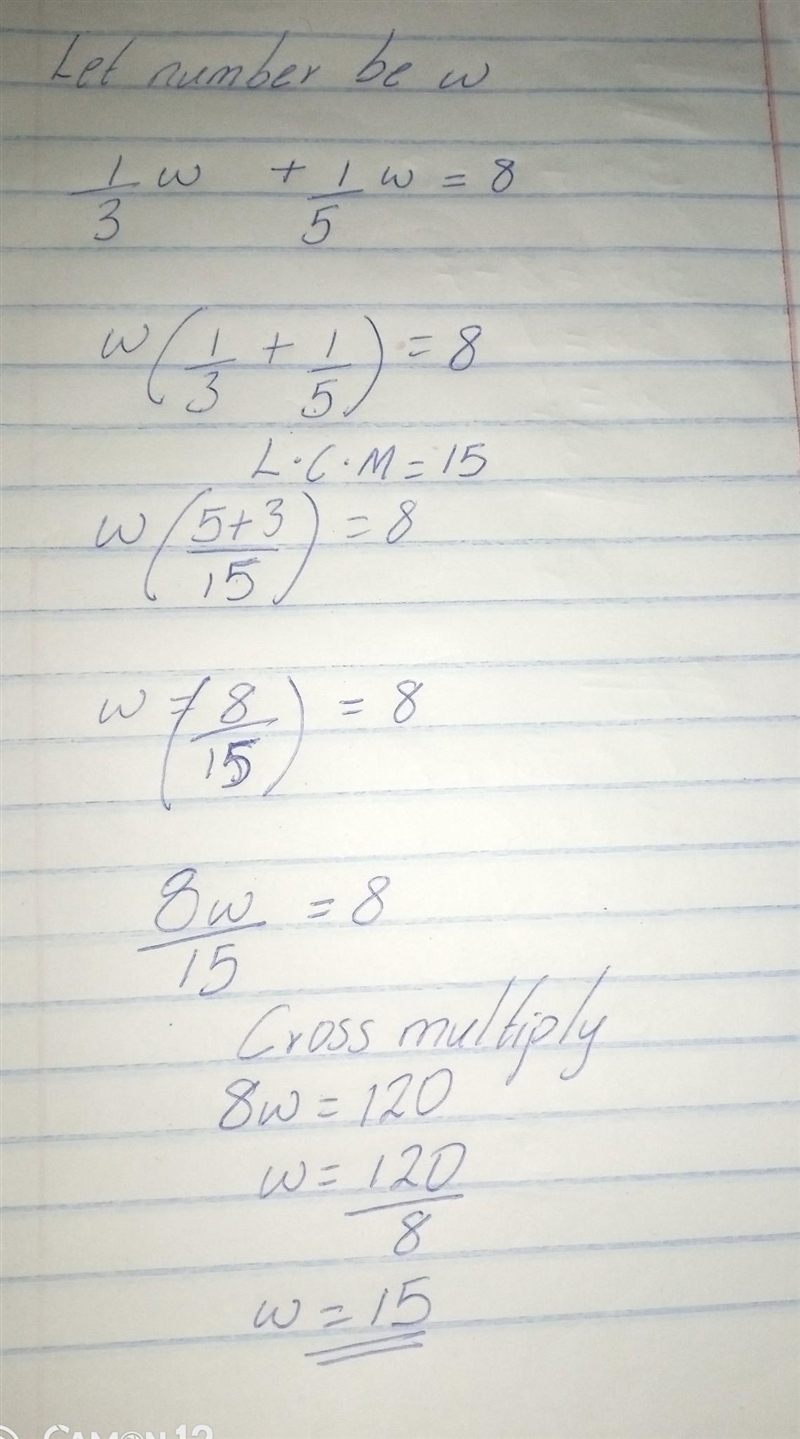 Let number be w
1/3 w + 1/5 w = 8
w(1/3 + 1/5) = 8
L.C.M = 15
w(5+3/15) = 8
w = (8/15) = 8
8w/15 = 8
Cross multiply
8w = 120
w = 120/8
w = 15
CAMON 12